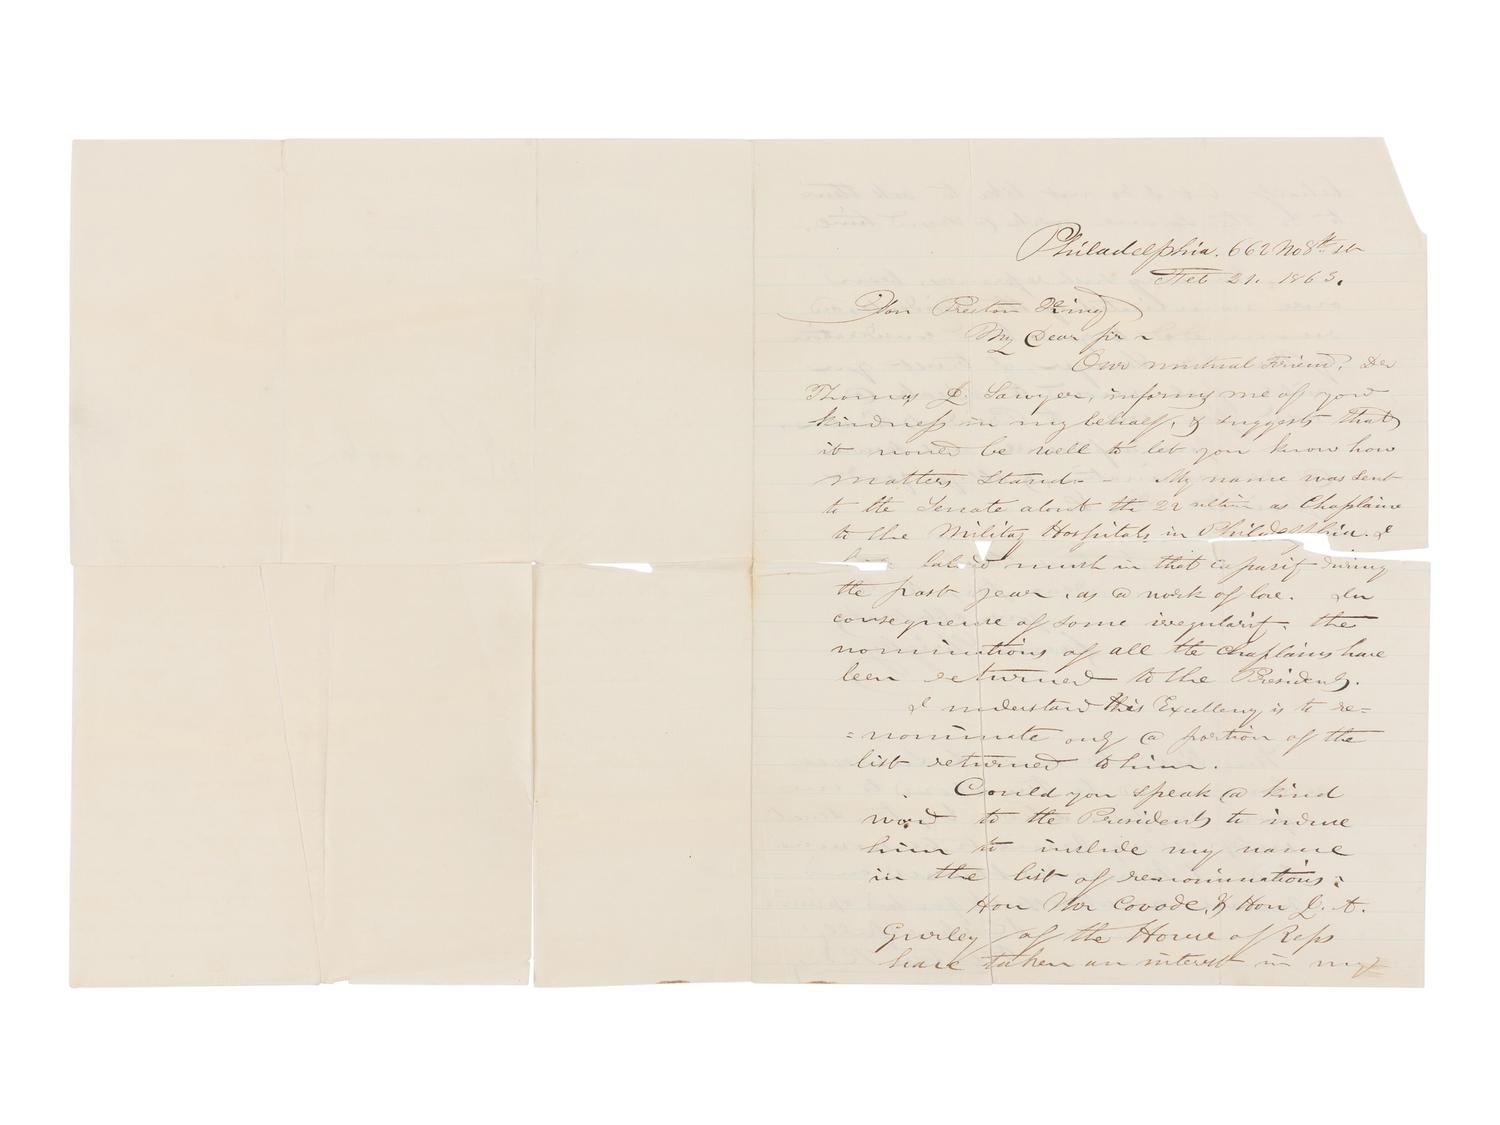 Philadelphia. 662 No 8th St
Feb 21. 1863.
Hon Preston King
My Dear Sir
Our mutual Friend, Dr
Thomas J. Sawyer, informs me of your
kindness in my behalf, & suggests that
it would be well to let you know how
matters stand - My name was sent
to the Senate about the 22 as Chaplain
to the Military Hospitals in Philadelphia. I
labored much in that capacity during
the past year, as a work of love. In
consequence of some irregularity, the
nominations of all the Chaplains have
been returned to the President.
I understand this Excellency is to re=
=nominate only a portion of the
list returned to him.
Could you speak a kind
word to the President to induce
him to include my name
in the list of renominations;
Hon Covode, & Hon J. A.
Gurley of the House of Reps
have taken an interest in my